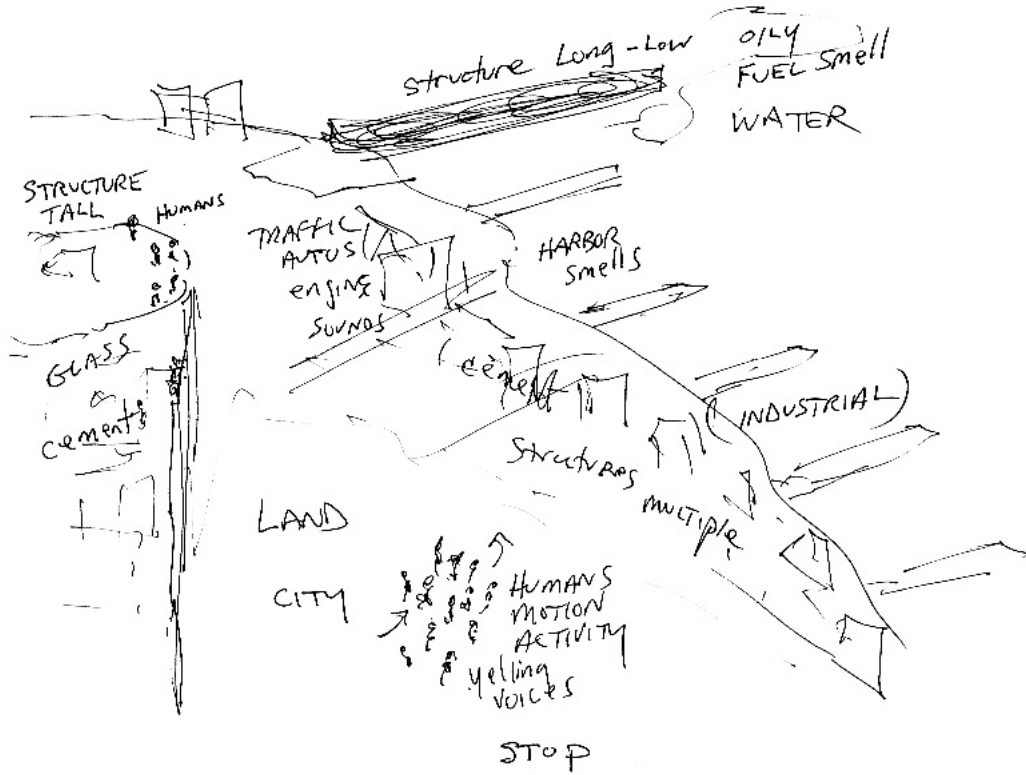 Structure Long-Low
OILY
FUEL Smell
WATER
STRUCTURE
TALL
HUMANS
TRAFFIC
AUTOS
engine
SOUNDS
HARBOR
Smells
GLASS
cements
(cement)
(INDUSTRIAL)
Structures
MULTIPLE
LAND
CITY
HUMANS
MOTION
ACTIVITY
yelling
voices
STOP